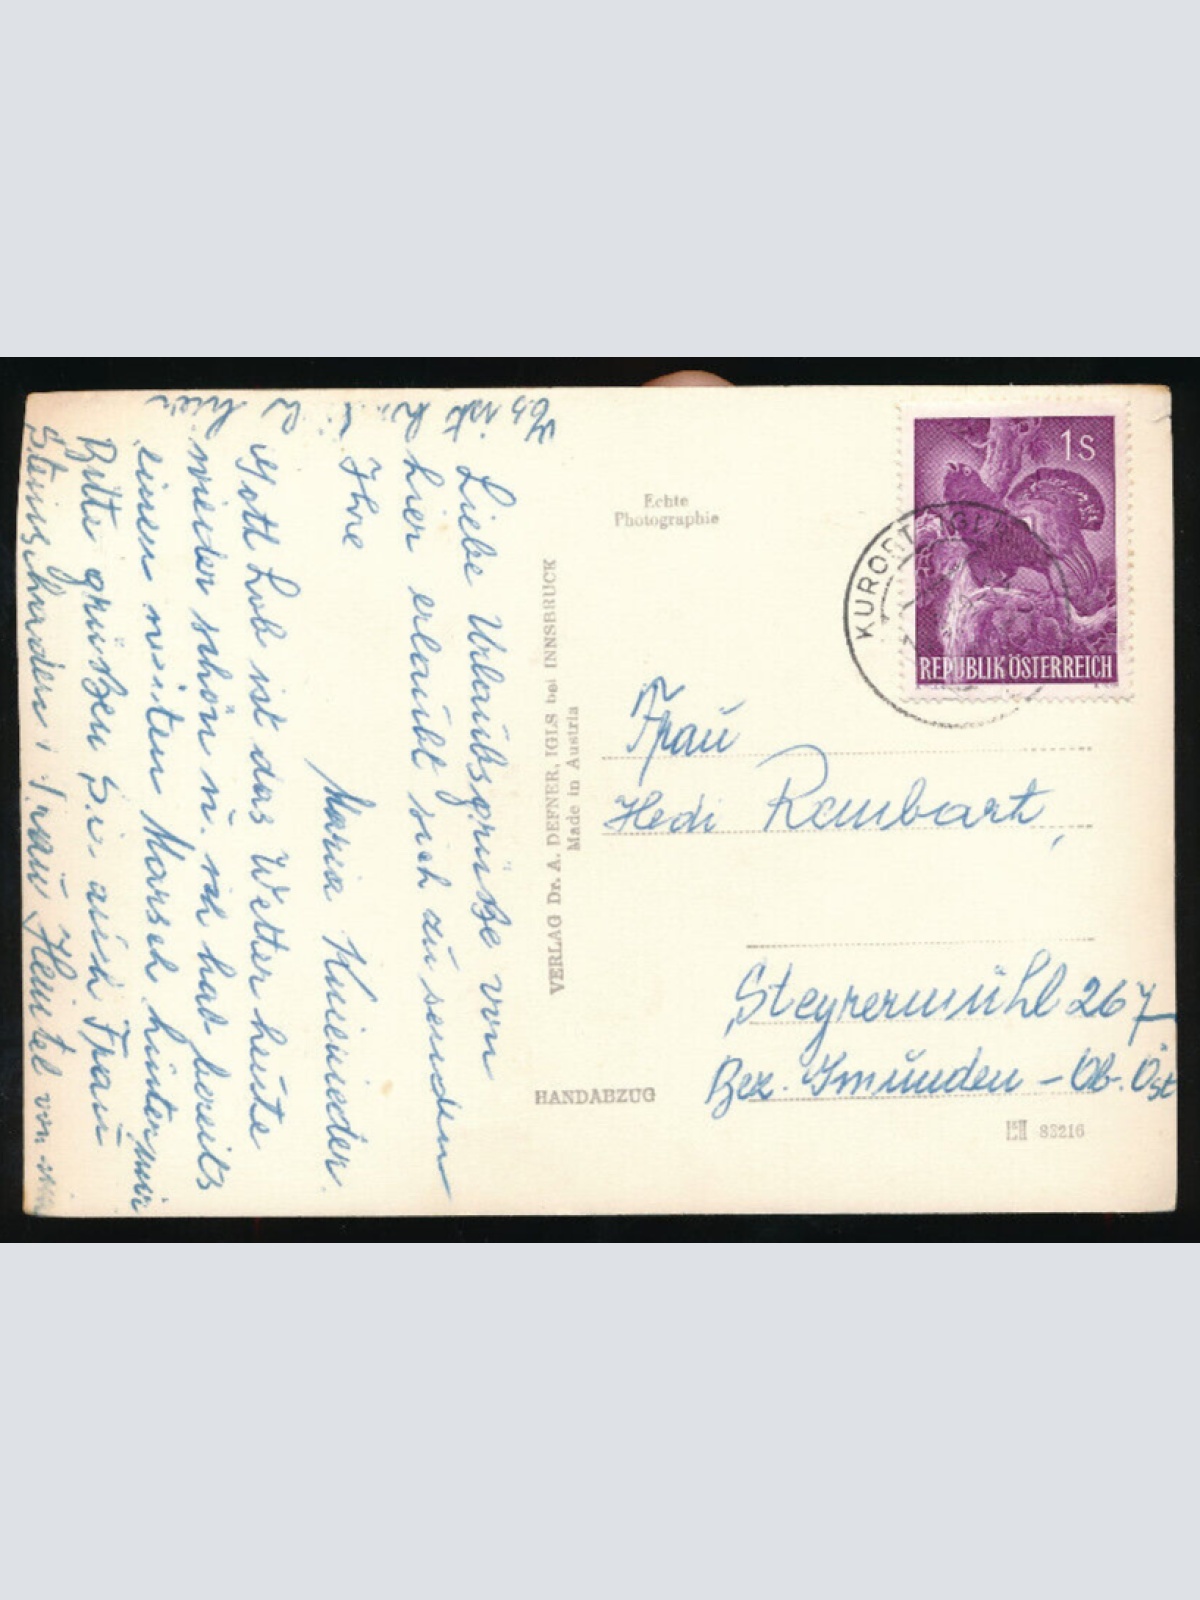 Liebe Urlaubsgrüße von
hier erlaubt sich zu senden
Ihre
Maria
Gott Lob ist das Wetter heute
wieder schön u. ich hab bereits
einen Marsch hinter mir
Bitte grüßen Sie auch Frau
Frau von
Es ist
hier
Echte
Photographie
VERLAG Dr. A. DEFNER, IGLS bei INNSBRUCK
Made in Austria
HANDABZUG
1S
REPUBLIK ÖSTERREICH
KURORT IGLS
Frau
Hedi Rembart,
Steyrermühl 267
Bez. Gmünden - Ob. Öst
83216